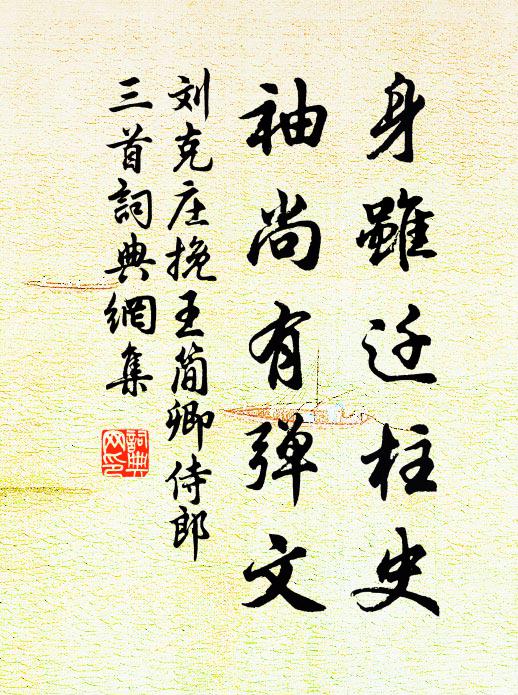 身雖迁柱史
袖尚有弹文
刘克庄挽王简卿侍郎
三首詞典網集
詞典网印